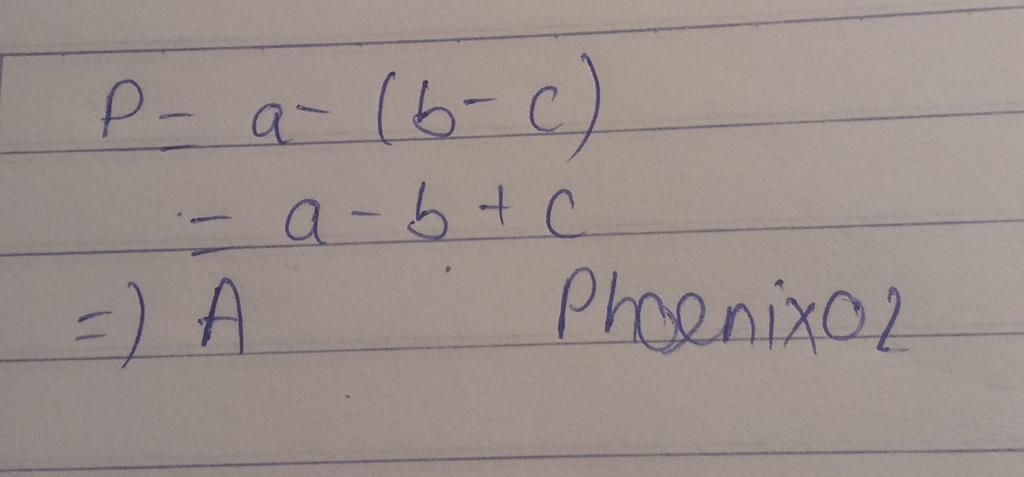 P = a - (b - c)
= a - b + c
=) A Phoenix02